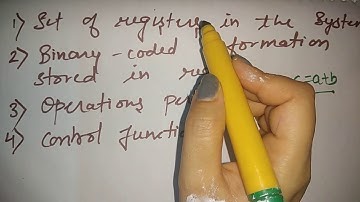 1) Set of registers in the System
2) Binary-coded formation
stored in re c=a+b
3) Operations per
4) Control Functi